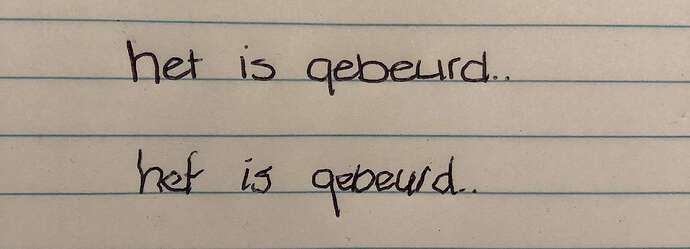 het is gebeurd..
het is gebeurd..